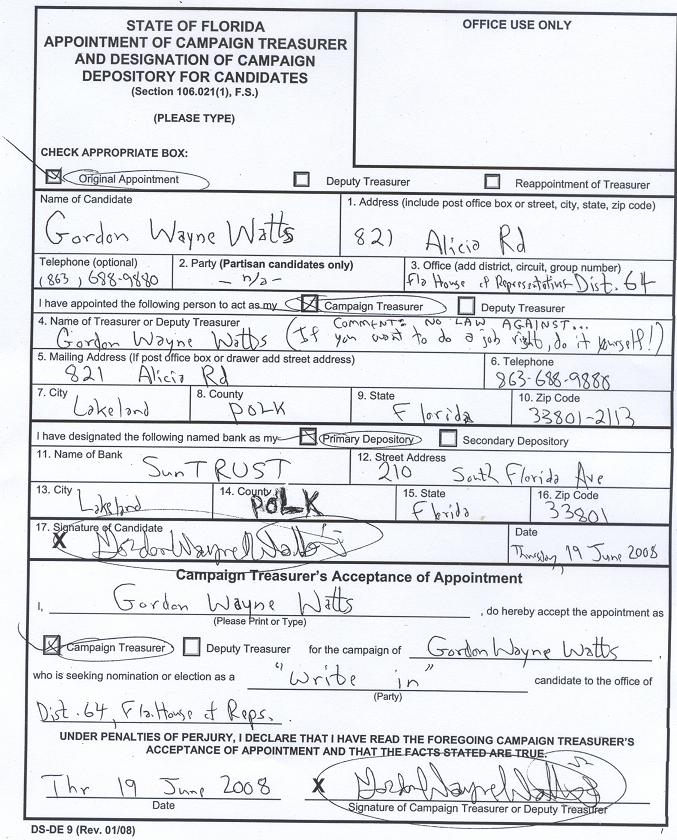 STATE OF FLORIDA
APPOINTMENT OF CAMPAIGN TREASURER
AND DESIGNATION OF CAMPAIGN
DEPOSITORY FOR CANDIDATES
(Section 106.021(1), F.S.)
(PLEASE TYPE)
OFFICE USE ONLY
CHECK APPROPRIATE BOX:
Original Appointment Deputy Treasurer Reappointment of Treasurer
Name of Candidate
Gordon Wayne Watts
1. Address (include post office box or street, city, state, zip code)
821 Alicia Rd
Telephone (optional)
(863) 688-9880
2. Party (Partisan candidates only)
- n/a -
3. Office (add district, circuit, group number)
Fla House of Representatives Dist. 64
I have appointed the following person to act as my Campaign Treasurer Deputy Treasurer
4. Name of Treasurer or Deputy Treasurer
Gordon Wayne Watts (COMMENT: NO LAW AGAINST...
If you want to do a job right, do it yourself!)
5. Mailing Address (If post office box or drawer add street address)
821 Alicia Rd
6. Telephone
863-688-9880
7. City
Lakeland
8. County
POLK
9. State
Florida
10. Zip Code
33801-2113
I have designated the following named bank as my Primary Depository Secondary Depository
11. Name of Bank
SunTRUST
12. Street Address
210 South Florida Ave
13. City
Lakeland
14. County
POLK
15. State
Florida
16. Zip Code
33801
17. Signature of Candidate
X Gordon Wayne Watts
Date
Thursday, 19 June 2008
Campaign Treasurer's Acceptance of Appointment
I, Gordon Wayne Watts , do hereby accept the appointment as
(Please Print or Type)
Campaign Treasurer Deputy Treasurer for the campaign of Gordon Wayne Watts ,
who is seeking nomination or election as a "Write in" candidate to the office of
(Party)
Dist. 64, Fla. House of Reps. .
UNDER PENALTIES OF PERJURY, I DECLARE THAT I HAVE READ THE FOREGOING CAMPAIGN TREASURER'S
ACCEPTANCE OF APPOINTMENT AND THAT THE FACTS STATED ARE TRUE.
Thr 19 June 2008 X Gordon Wayne Watts
Date Signature of Campaign Treasurer or Deputy Treasurer
DS-DE 9 (Rev. 01/08)